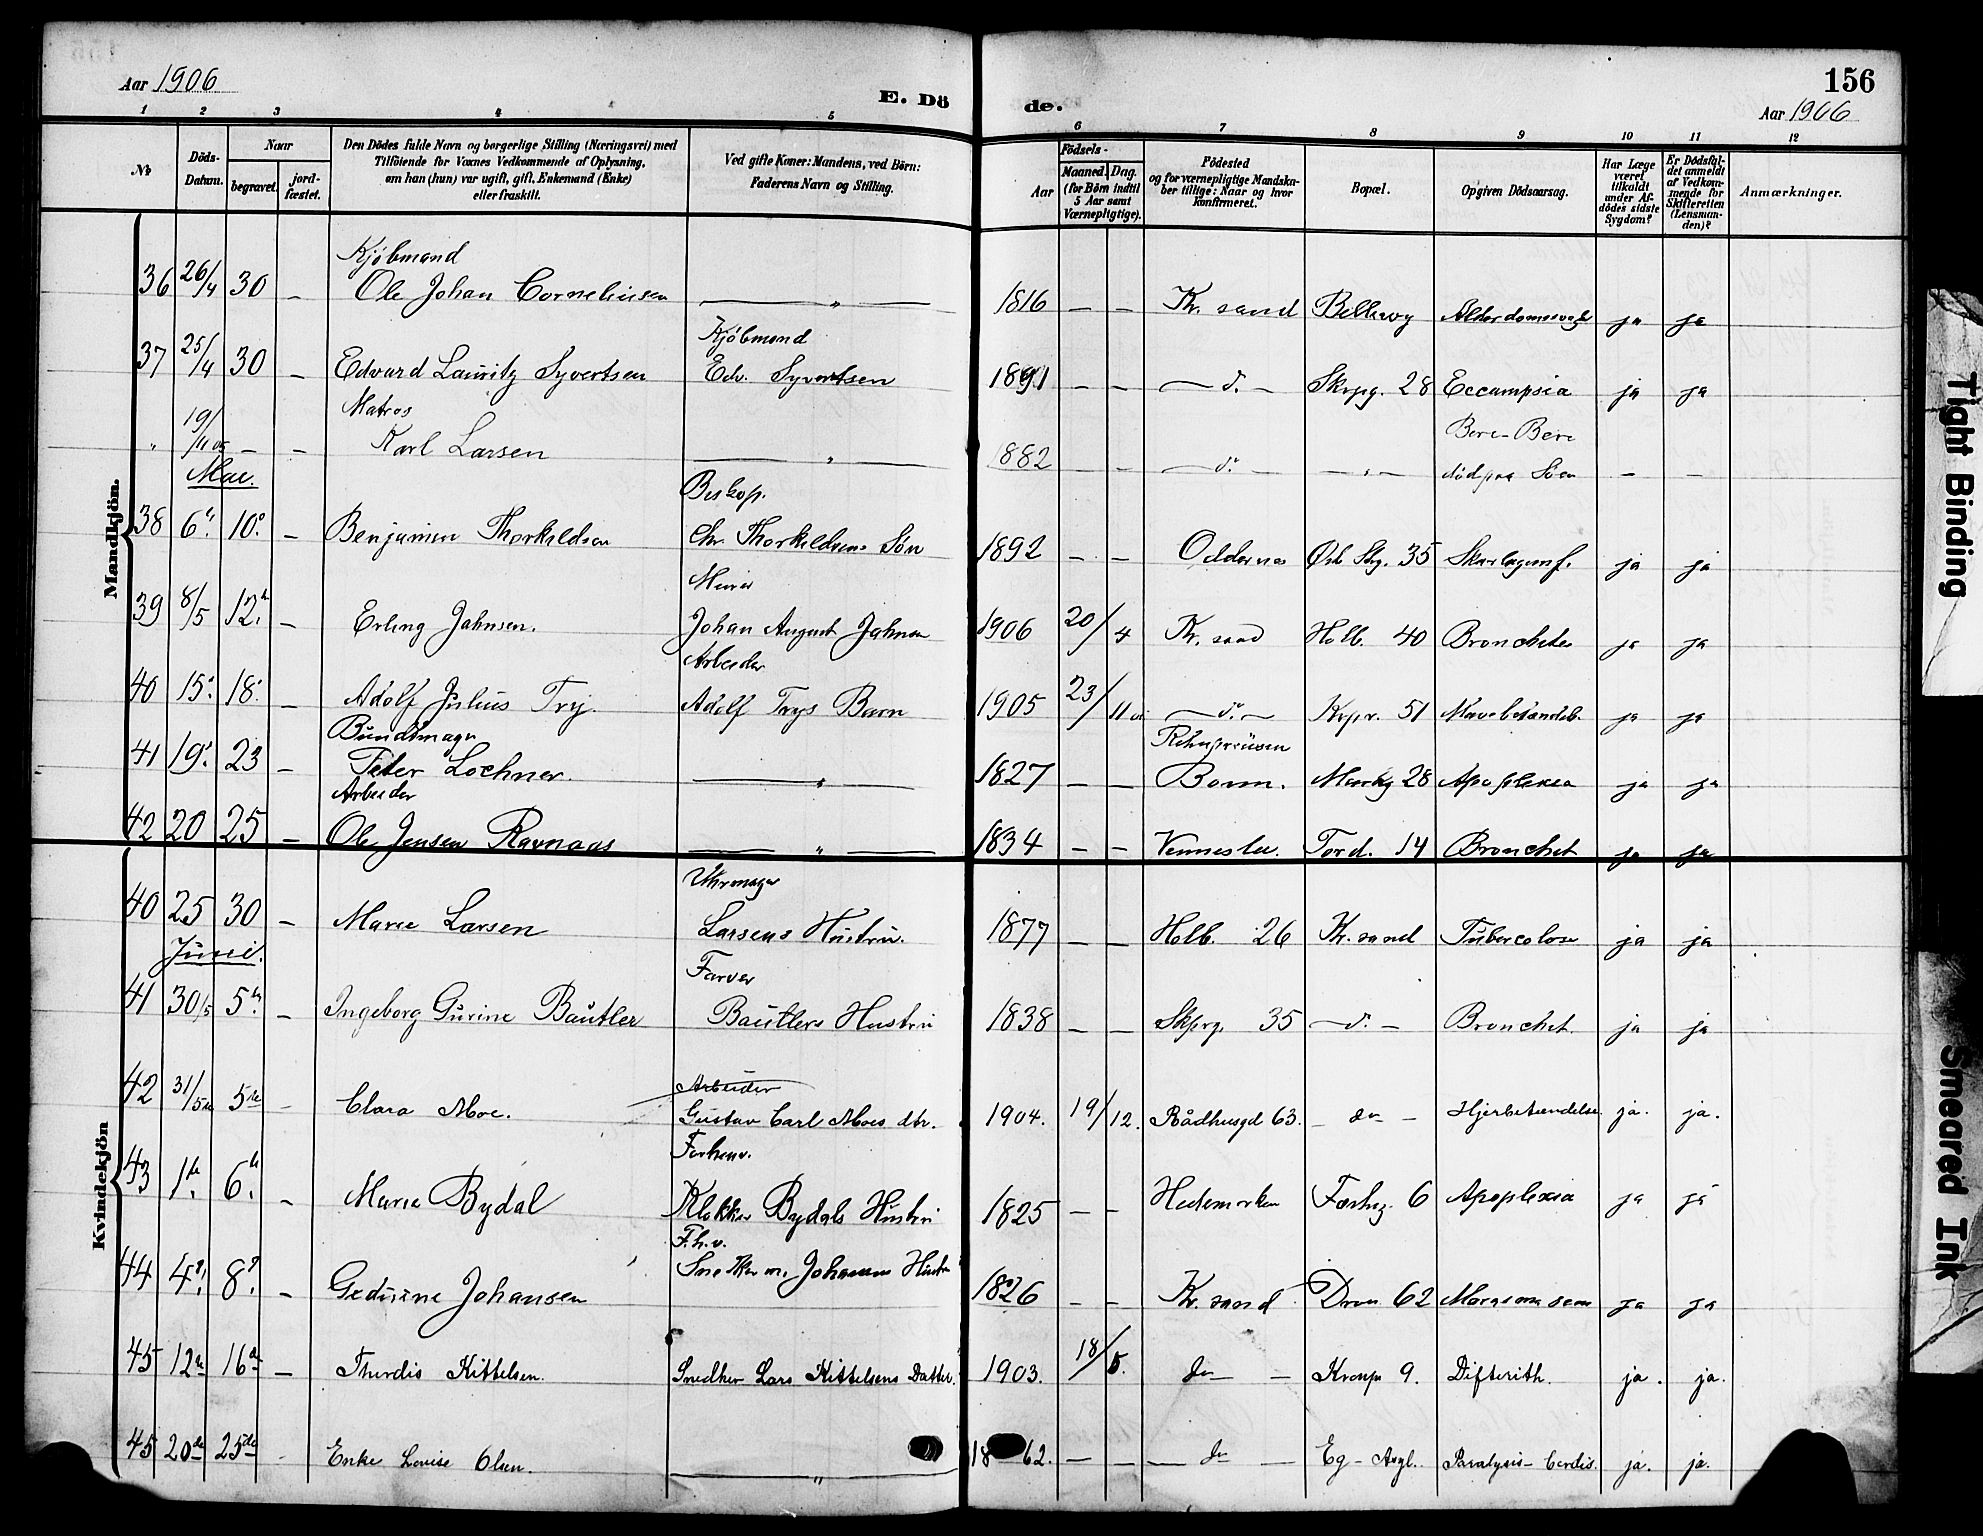 Aar 1906
E. Dö
de.
156
Aar 1906
1 2 3 4 5 6 7 8 9 10 11 12
No
Döds-Datum.
Naar
begravet.
jord-fæstet.
Den Dödes fulde Navn og borgerlige Stilling (Næringsvei) med
Tilföiende for Voxnes Vedkommende af Oplysning,
om han (hun) var ugift, gift, Enkemand (Enke)
eller fraskilt.
Ved gifte Koner: Mandens, ved Börn:
Faderens Navn og Stilling.
Födsels-
Aar
Maaned. Dag.
(for Börn indtil
5 Aar samt
Værnepligtige).
Födested
og for værnepligtige Mandska-
ber tillige: Naar og hvor
konfirmeret.
Bopæl.
Opgiven Dödsaarsag.
Har Læge
været
tilkaldt
under Af-
dödes sidste
Sygdom?
Er Dödsfal-
det anmeldt
af Vedkom-
mende for
Skifteretten
(Lensman-
den)?
Anmærkninger.
Mandkjön.
Kjøbmand
36 26/4 30 – Ole Johan Corneliusen — „ — 1816 – – Kr. sand Bellevy ja ja
Kjöbmand
37 25/4 30 – Edvard Lauritz Syvertsen Edv. Syvertsen 1891 – – — d. — Skpg. 28 Eccampsia ja ja
Matros Bere-Bere
„ 19/11 05 – – Karl Larsen — „ — 1882 – – — d. — — „ — död paa Söen – –
Mai. Biskop.
38 6. 10. – Benjamin Thorkildsen Chr. Thorkildsens Sön 1892 – – Oddernes 35 Skarlagensf. ja ja
Murer
39 8/5 12. – Erling Jahnsen. Johan August Jahnsen 1906 20/4 Kr. sand Holb. 40 Bronchites ja ja
Arbeider
40 15. 18. – Adolf Julius Try. Adolf Trys Barn 1905 23/11 — d. — Kopr. 51 Mavebetændels. ja ja
Bundtmager Rehnpreüsen
41 19. 23 – Peter Lochner. — „ — 1827 – – Bonn. Markg 28 Apoplexia ja ja
Arbeider
42 20 25 – Ole Jensen Ravnaas — „ — 1834 – – Vennesla. Tord. 14 Bronchit ja ja
Kvindekjön
Uhrmager
40 25 30 – Marie Larsen Larsens Hustru. 1877 – – Holb. 26 Kr. sand Tubercolose ja ja
Juni. Farver
41 30/5 5. – Ingeborg Gurine Bautler Bautlers Hustru 1838 – – Skprg. 35 — d. — Bronchit. ja ja
Arbeider
42 31/5 5te – Clara Moe. Gustav Carl Moes dtr. 1904. 19/12. Rådhusgd 63. – do – Hjerbetændelse. ja. ja.
Forhenv.
43 1te. 6te. – Marie Bydal Klokker Bydals Hustru 1825 – – Hedemarken Festng. 6 Apoplexia ja ja
F.h.v.
44 4. 8. – Gedurine Johansen Snedkerm. Johansens Hustr 1826 – – Kr. sand Dron 62 ja ja
45 12te 16de – Thordis Kittelsen. Snedker Lars Kittelsens Datter. 1903. 18/5. do — Kronp 9. Difterith. ja. ja.
45 20de 25de - Enke Lovise Olsen. — „ — 1862. – – — do — Eg – Asyl. Paralysis – Cordis. ja. ja.
Tight Binding
Smeared Ink